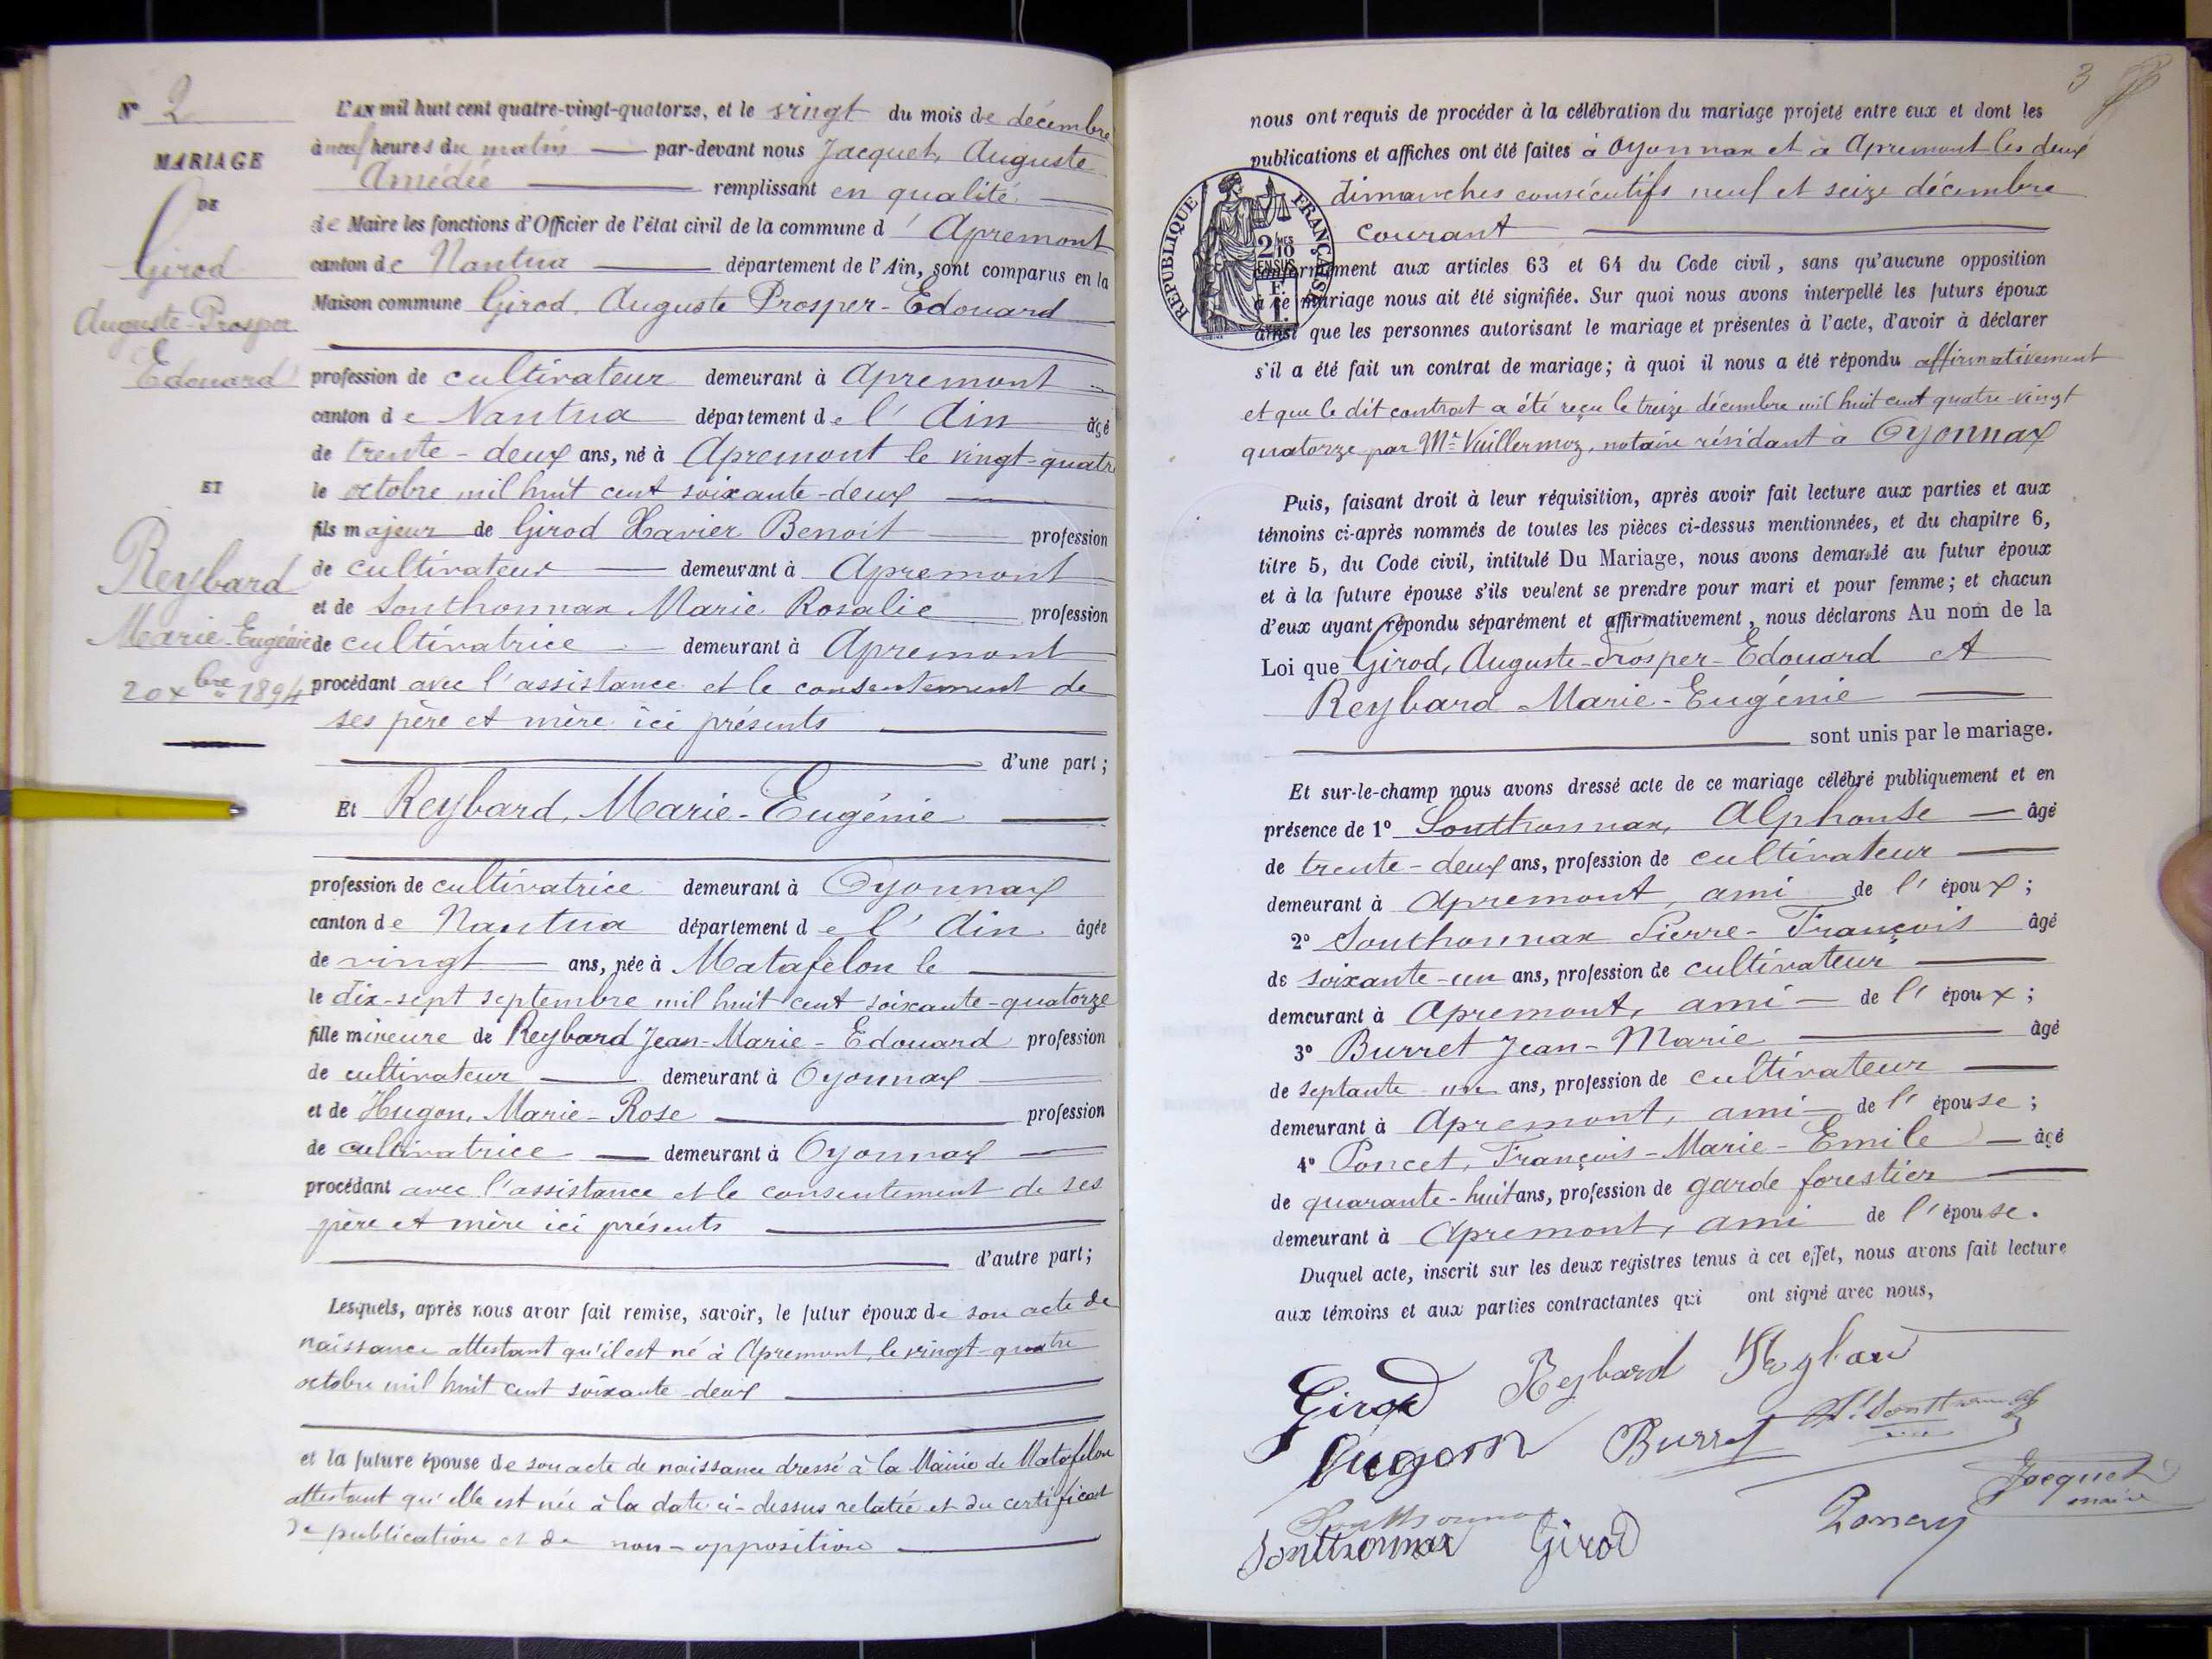 Nº 2
MARIAGE
DE
Girod
Auguste-Prosper
Edouard
ET
Reybard
Marie-Eugénie
20 xbre 1894
L'AN mil huit cent quatre-vingt-quatorze, et le vingt du mois de décembre
à neuf heures du matin par-devant nous Jacquet, Auguste
Amédée remplissant en qualité
de Maire les fonctions d'Officier de l'état civil de la commune d' Apremont
canton de Nantua département de l'Ain, sont comparus en la
Maison commune Girod, Auguste Prosper-Edouard
profession de cultivateur demeurant à Apremont
canton de Nantua département de l'Ain âgé
de trente-deux ans, né à Apremont le vingt-quatre
le octobre mil huit cent soixante-deux
fils majeur de Girod Xavier Benoit profession
de cultivateur demeurant à Apremont
et de Sonthonnax Marie Rosalie profession
de cultivatrice demeurant à Apremont
procédant avec l'assistance et le consentement de
ses père et mère ici présents
d'une part;
Et Reybard, Marie-Eugénie
profession de cultivatrice demeurant à Oyonnax
canton de Nantua département de l'Ain âgée
de vingt ans, née à Matafelon le
le dix-sept septembre mil huit cent soixante-quatorze
fille mineure de Reybard Jean-Marie-Edouard profession
de cultivateur demeurant à Oyonnax
et de Hugon, Marie-Rose profession
de cultivatrice demeurant à Oyonnax
procédant avec l'assistance et le consentement de ses
père et mère ici présents
d'autre part;
Lesquels, après nous avoir fait remise, savoir, le futur époux de son acte de
naissance attestant qu'il est né à Apremont, le vingt-quatre
octobre mil huit cent soixante-deux
et la future épouse de son acte de naissance dressé à la Mairie de Matafelon
attestant qu'elle est née à la date ci-dessus relatée et du certificat
de publication et de non-opposition
3
nous ont requis de procéder à la célébration du mariage projeté entre eux et dont les
publications et affiches ont été faites à Oyonnax et à Apremont les deux
dimanches consécutifs neuf et seize décembre
courant
RÉPUBLIQUE FRANÇAISE
2/10 EN SUS
1 F.
conformément aux articles 63 et 64 du Code civil, sans qu'aucune opposition
à ce mariage nous ait été signifiée. Sur quoi nous avons interpellé les futurs époux
ainsi que les personnes autorisant le mariage et présentes à l'acte, d'avoir à déclarer
s'il a été fait un contrat de mariage; à quoi il nous a été répondu affirmativement
et que le dit contrat a été reçu le treize décembre mil huit cent quatre-vingt
quatorze par Mr Vuillermoz, notaire résidant à Oyonnax
Puis, faisant droit à leur réquisition, après avoir fait lecture aux parties et aux
témoins ci-après nommés de toutes les pièces ci-dessus mentionnées, et du chapitre 6,
titre 5, du Code civil, intitulé Du Mariage, nous avons demandé au futur époux
et à la future épouse s'ils veulent se prendre pour mari et pour femme; et chacun
d'eux ayant répondu séparément et affirmativement, nous déclarons Au nom de la
Loi que Girod, Auguste-Prosper-Edouard et
Reybard Marie-Eugénie
sont unis par le mariage.
Et sur-le-champ nous avons dressé acte de ce mariage célébré publiquement et en
présence de 1º Sonthonnax, Alphonse âgé
de trente-deux ans, profession de cultivateur
demeurant à Apremont, ami de l'époux;
2º Sonthonnax Pierre-François âgé
de soixante-un ans, profession de cultivateur
demeurant à Apremont, ami de l'époux;
3º Burret Jean-Marie âgé
de septante un ans, profession de cultivateur
demeurant à Apremont, ami de l'épouse;
4º Poncet, François-Marie-Emile âgé
de quarante-huit ans, profession de garde forestier
demeurant à Apremont, ami de l'épouse.
Duquel acte, inscrit sur les deux registres tenus à cet effet, nous avons fait lecture
aux témoins et aux parties contractantes qui ont signé avec nous,
Girod Reybard Reybard
Hugon Burret Sonthonnax
Jacquet
maire
Sonthonnax
Sonthonnax Girod Poncet